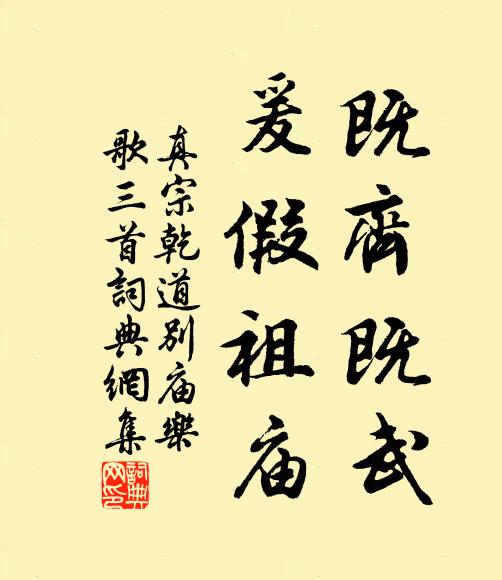 既齊既武
爰假祖庙
真宗乾道別庙樂
歌三首詞典網集
詞典
网印